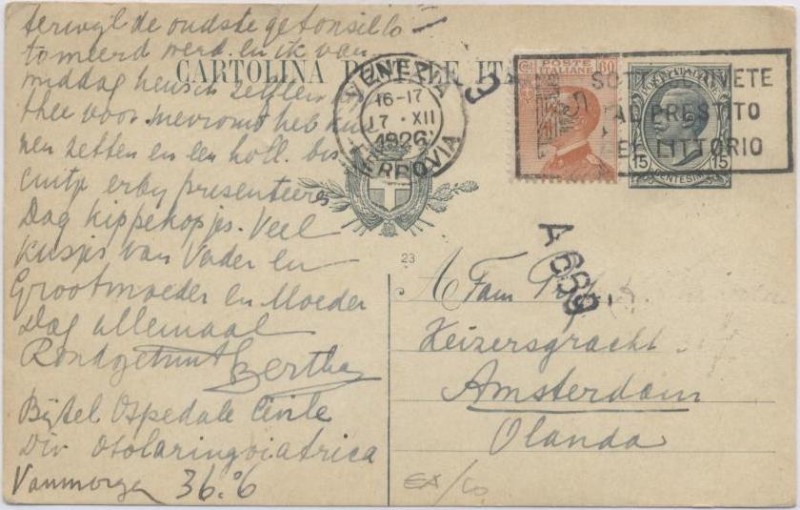 terwijl de oudste getonsillo
tomeerd werd en ik van
middag heusch zelf een
thee voor mevrouw heb kun
nen zetten en een holl. bis
cuitje erby presenteers
Dag kippekopjes. Veel
kusjes van Vader en
Grootmoeder en Moeder
Dag allemaal
Berthe
Bijtel Ospedale Civile
Div Otolaringoiatrica
Vanmorgen 36.°6
CARTOLINA POSTALE IT
VENEZIA
16-17
17 · XII
1926
FERROVIA
POSTE
ITALIANE
60
SOTTOSCRIVETE
AL PRESTITO
DEL LITTORIO
15 15
CENTESIMI
23
A 659
Fam
Keizersgracht
Amsterdam
Olanda